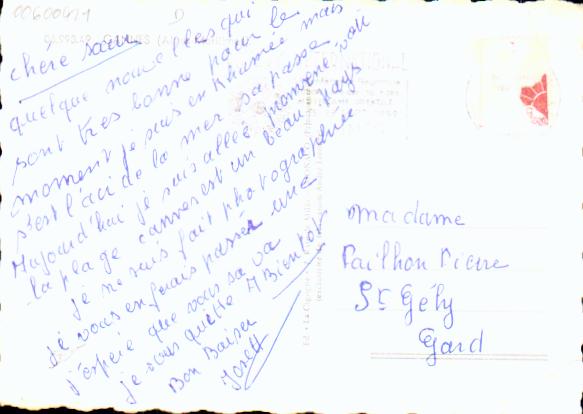 00600411
D
chere sœur
quelque nouvelles qui
sont tres bonne pour le
moment je suis en Rhumée mais
s'est l'aci de la mer sa passe
Aujourd'hui je suis allée promené voir
la plage cannes est un beau pays
je me suis fait photographiee
je vous en ferais passée une
j'espere que vous sa va
je vous quitte A Bientot
Bon Baiser
Josett
Madame
Pailhon Pierre
St Gély
Gard